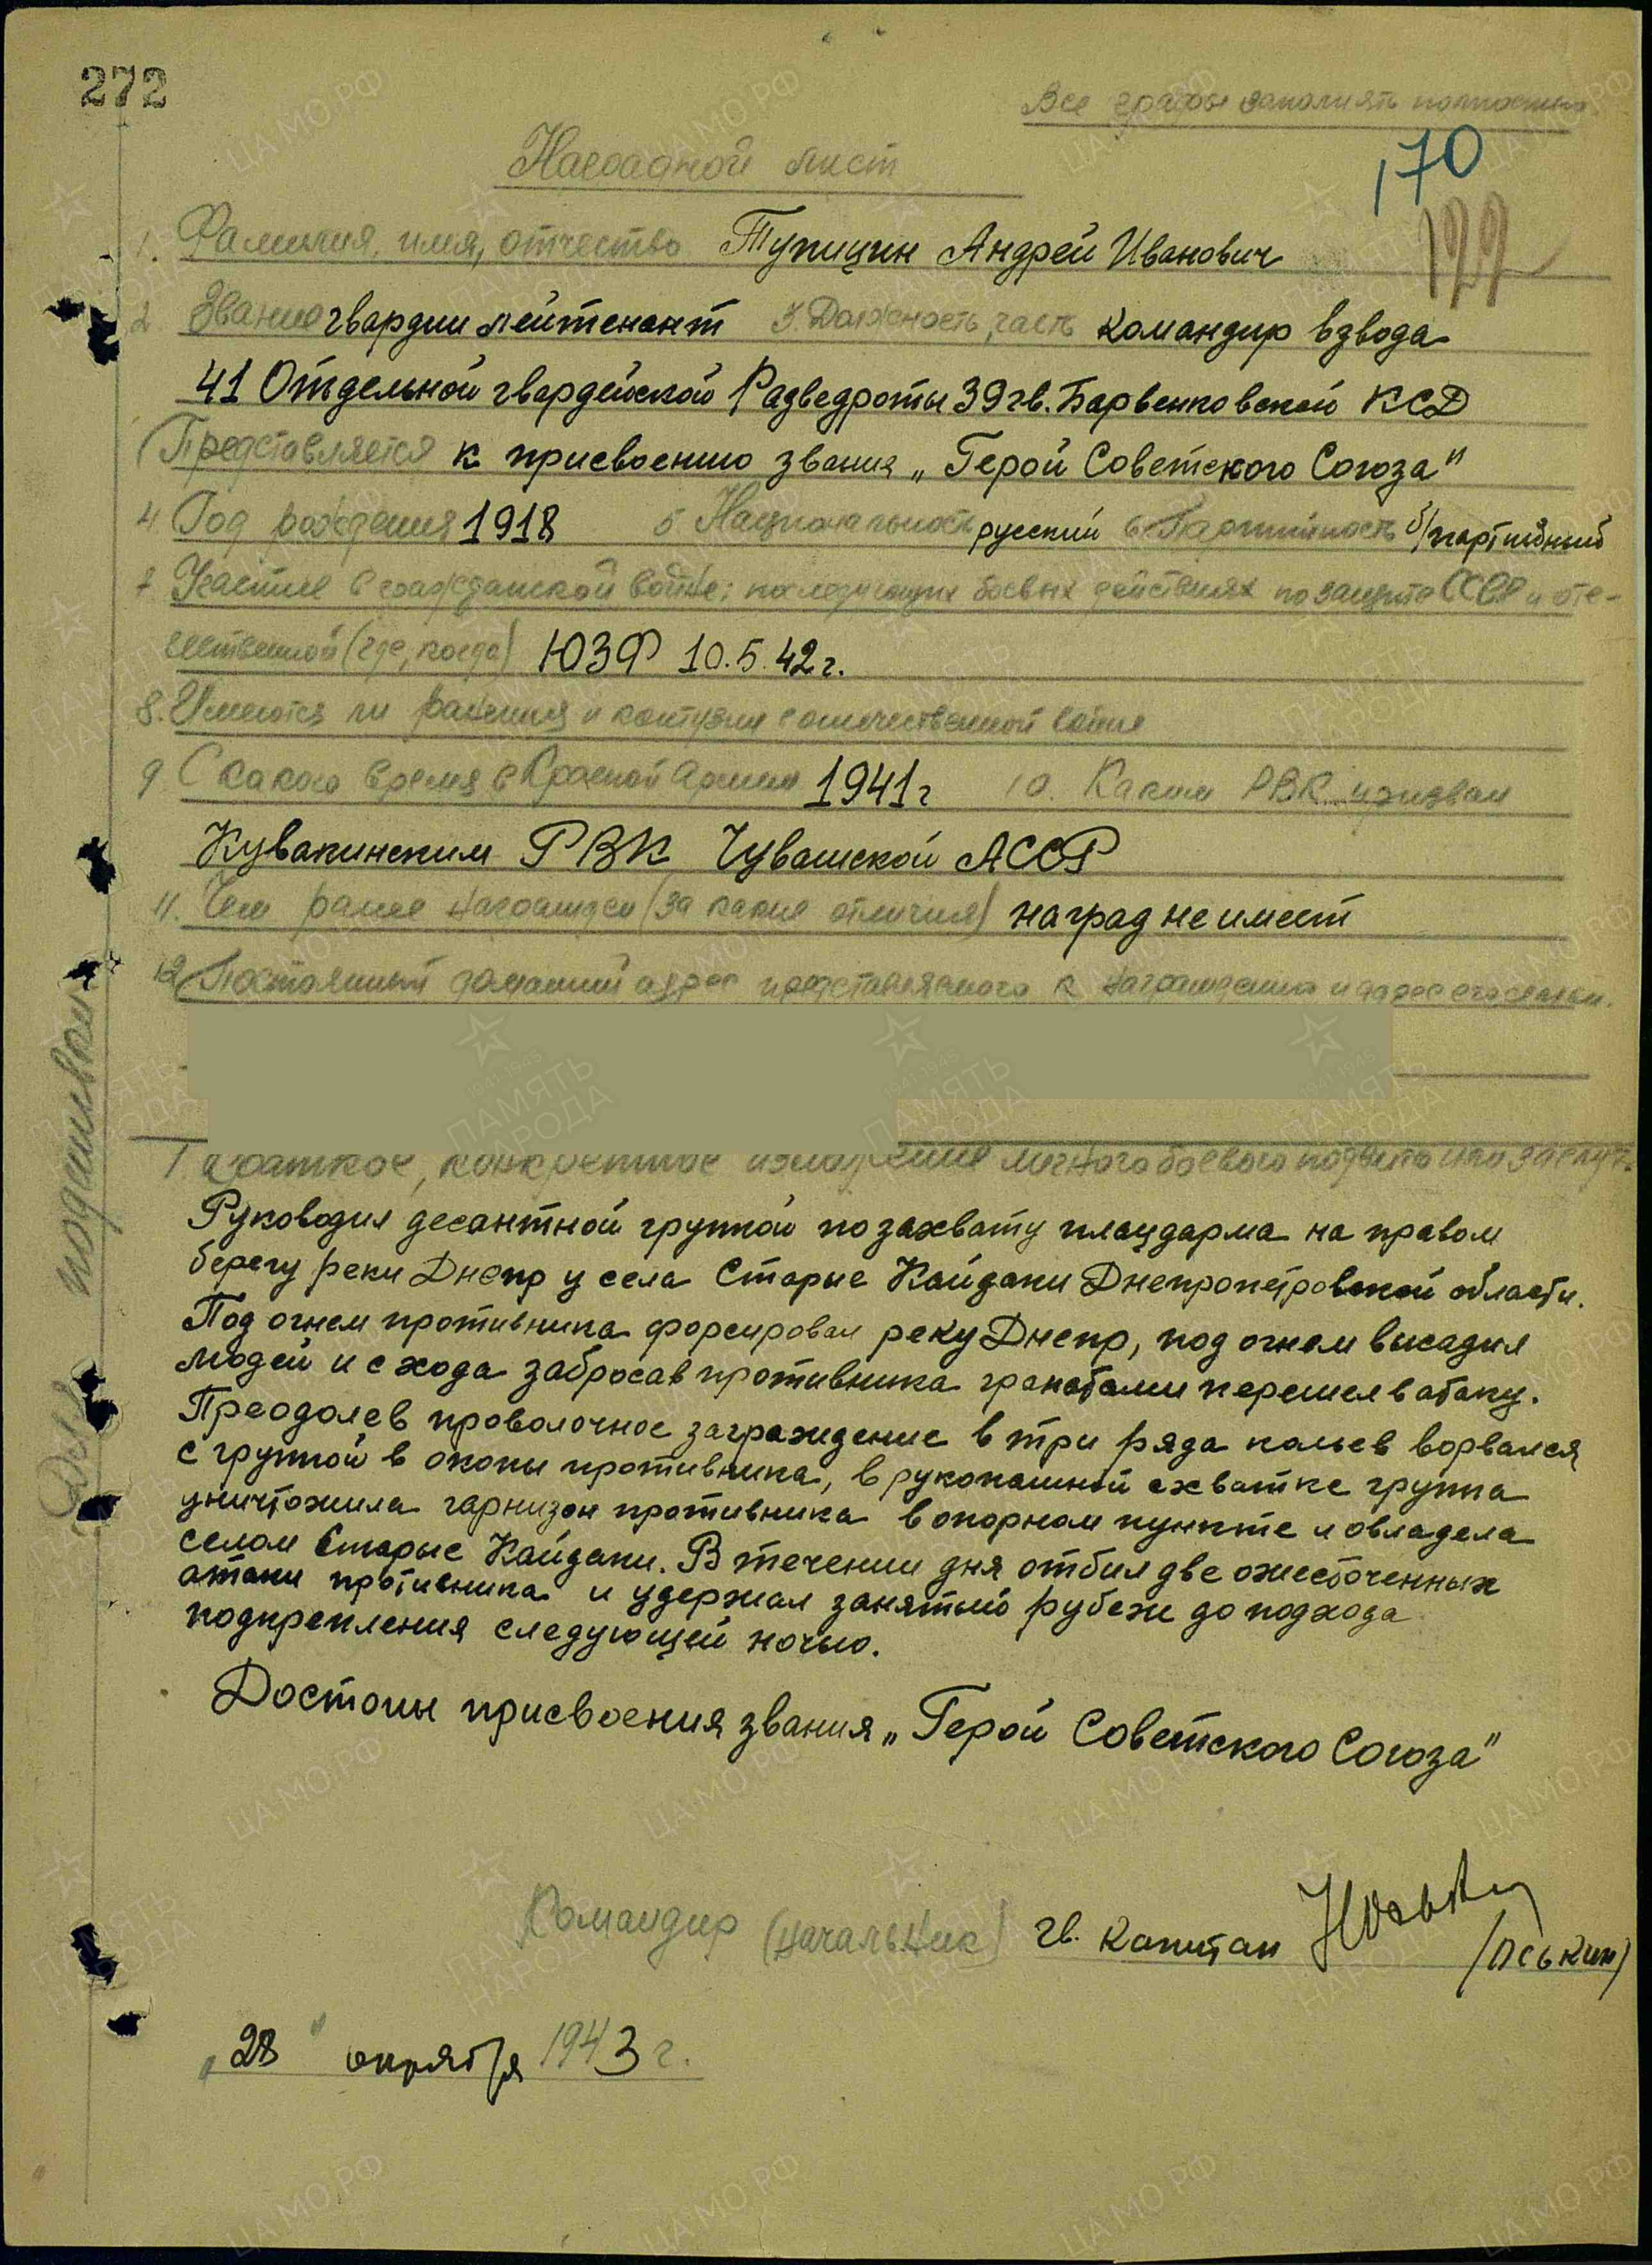 272
Все графы заполнять полностью
Наградной лист
170
122
1. Фамилия, имя, отчество Тупицин Андрей Иванович
2 Звание гвардии лейтенант 3. Должность, часть командир взвода
41 Отдельной гвардейской Разведроты 39 гв. Барвенковской КСД
Представляется к присвоению звания „Герой Советского Союза"
4. Год рождения 1918 5 Национальность русский 6 Партийность б/партийный
7. Участие в гражданской войне; последующих боевых действиях по защите СССР и оте-
чественной (где, когда) ЮЗФ 10.5.42 г.
8. Имеются ли ранения и контузии в отечественной войне
9 С какого время в Красной Армии 1941 г 10. Каким РВК призван
Кувакинским РВК Чувашской АССР
11. Чем ранее награжден (за какие отличия) наград не имеет
12 Постоянный домашний адрес представляемого к награждению и адрес его семьи.
1. Краткое, конкретное изложение личного боевого подвига или заслуг.
Руководил десантной группой по захвату плацдарма на правом
берегу реки Днепр у села Старые Кайдаки Днепропетровской области.
Под огнем противника форсировал реку Днепр, под огнем высадил
людей и с хода забросав противника гранатами перешел в атаку.
Преодолев проволочное заграждение в три ряда кольев ворвался
с группой в окопы противника, в рукопашной схватке группа
уничтожила гарнизон противника в опорном пункте и овладела
селом Старые Кайдаки. В течении дня отбил две ожесточенных
атаки противника и удержал занятый рубеж до подхода
подкрепления следующей ночью.
Достоин присвоения звания „Герой Советского Союза"
Командир (начальник) гв. капитан
/Оськин/
„28" октября 1943 г.
подшивки
ЦАМО.РФ
ПАМЯТЬ
НАРОДА